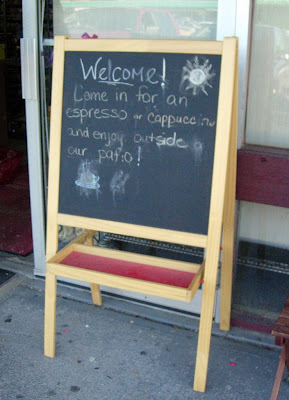 Welcome!
Come in for an
espresso or cappuccino
and enjoy outside
our patio!